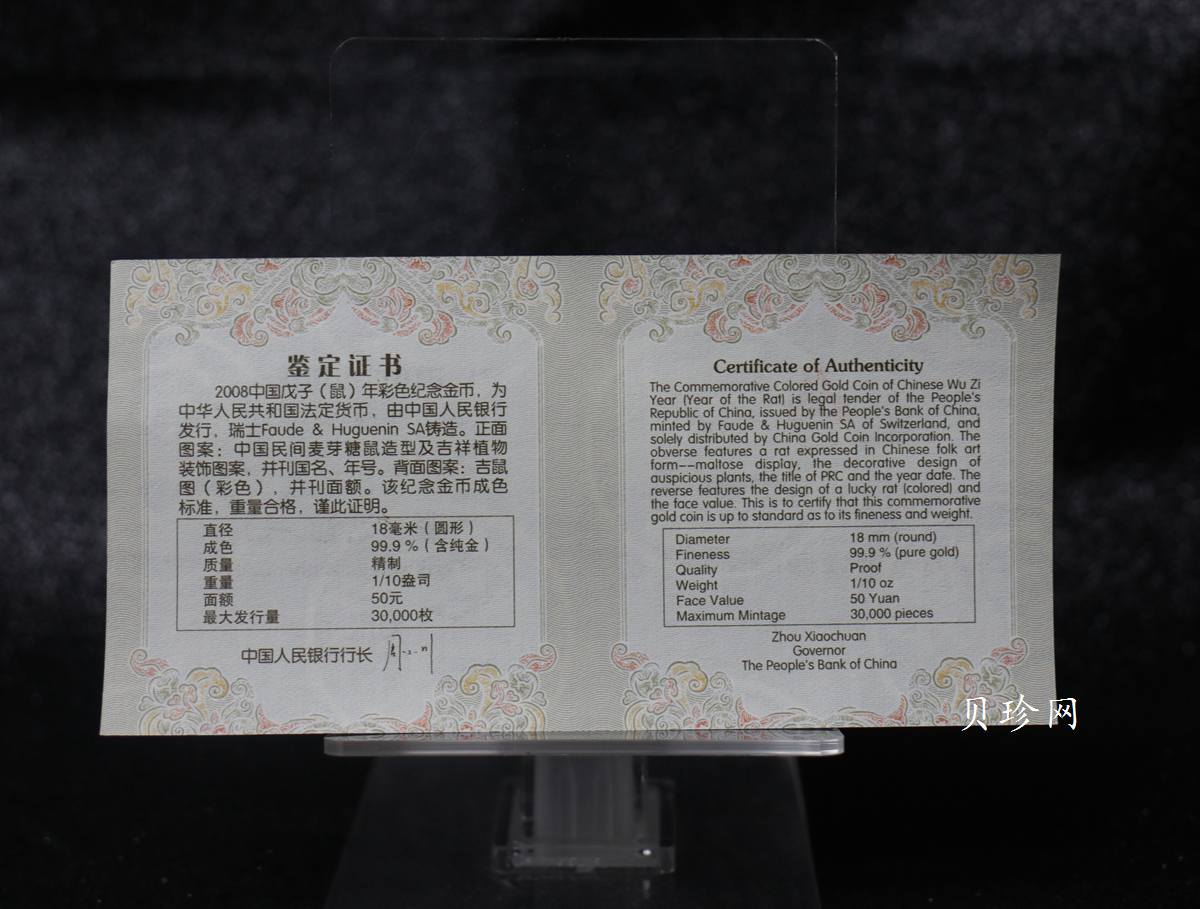 鉴定证书
2008中国戊子（鼠）年彩色纪念金币，为
中华人民共和国法定货币，由中国人民银行
发行，瑞士Faude & Huguenin SA铸造。正面
图案：中国民间麦芽糖鼠造型及吉祥植物
装饰图案，并刊国名、年号。背面图案：吉鼠
图（彩色），并刊面额。该纪念金币成色
标准，重量合格，谨此证明。
直径 18毫米（圆形）
成色 99.9 %（含纯金）
质量 精制
重量 1/10盎司
面额 50元
最大发行量 30,000枚
中国人民银行行长
Certificate of Authenticity
The Commemorative Colored Gold Coin of Chinese Wu Zi
Year (Year of the Rat) is legal tender of the People's
Republic of China, issued by the People's Bank of China,
minted by Faude & Huguenin SA of Switzerland, and
solely distributed by China Gold Coin Incorporation. The
obverse features a rat expressed in Chinese folk art
form--maltose display, the decorative design of
auspicious plants, the title of PRC and the year date. The
reverse features the design of a lucky rat (colored) and
the face value. This is to certify that this commemorative
gold coin is up to standard as to its fineness and weight.
Diameter 18 mm (round)
Fineness 99.9 % (pure gold)
Quality Proof
Weight 1/10 oz
Face Value 50 Yuan
Maximum Mintage 30,000 pieces
Zhou Xiaochuan
Governor
The People's Bank of China
贝珍网